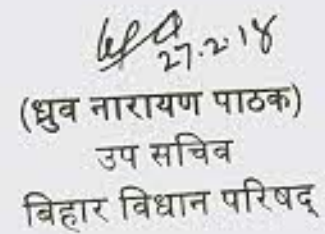 27.2.18
(ध्रुव नारायण पाठक)
उप सचिव
बिहार विधान परिषद्